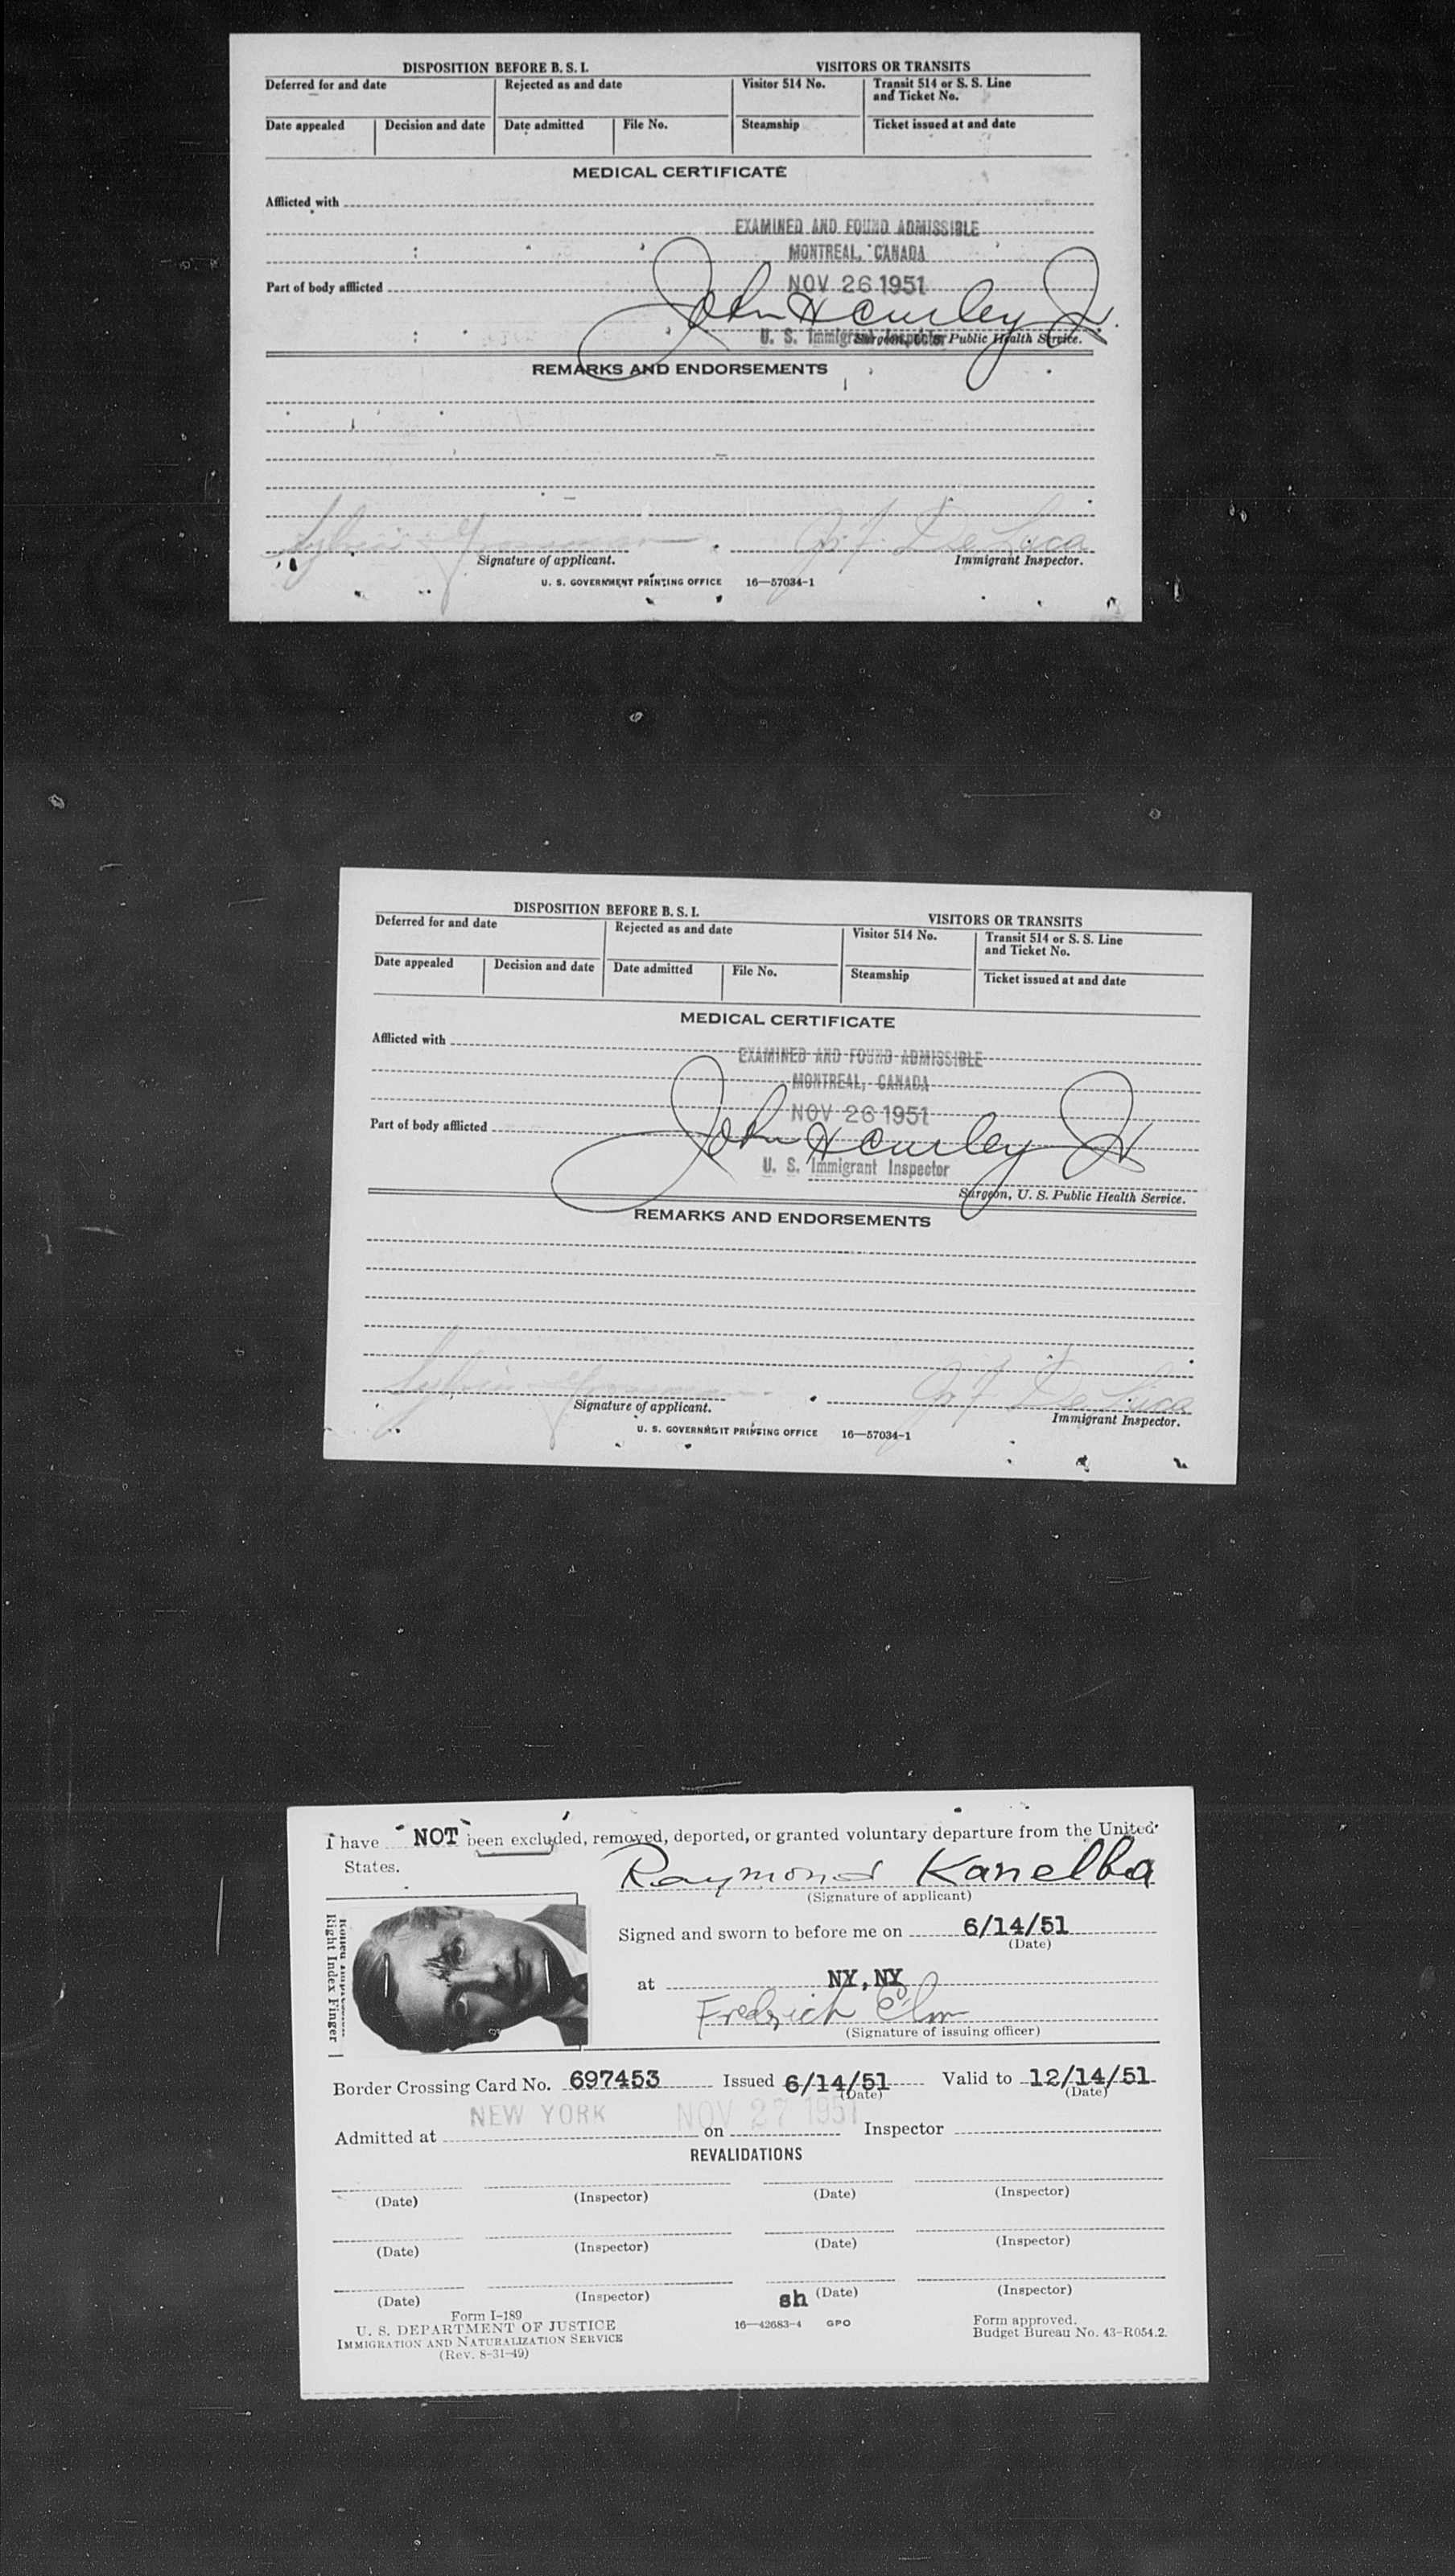 DISPOSITION BEFORE B. S. I. VISITORS OR TRANSITS
Deferred for and date Rejected as and date Visitor 514 No. Transit 514 or S. S. Line and Ticket No.
Date appealed Decision and date Date admitted File No. Steamship Ticket issued at and date
MEDICAL CERTIFICATE
Afflicted with
EXAMINED AND FOUND ADMISSIBLE
MONTREAL, CANADA
Part of body afflicted NOV 26 1951
John H Curley Jr
U. S. Immigrant Inspector
Surgeon, U. S. Public Health Service.
REMARKS AND ENDORSEMENTS
Sylvia Grossman J. F. De Luca
Signature of applicant. Immigrant Inspector.
U. S. GOVERNMENT PRINTING OFFICE 16—57034-1
DISPOSITION BEFORE B. S. I. VISITORS OR TRANSITS
Deferred for and date Rejected as and date Visitor 514 No. Transit 514 or S. S. Line and Ticket No.
Date appealed Decision and date Date admitted File No. Steamship Ticket issued at and date
MEDICAL CERTIFICATE
Afflicted with
EXAMINED AND FOUND ADMISSIBLE
MONTREAL, CANADA
Part of body afflicted NOV 26 1951
John H Curley Jr
U. S. Immigrant Inspector
Surgeon, U. S. Public Health Service.
REMARKS AND ENDORSEMENTS
Sylvia Grossman J. F. De Luca
Signature of applicant. Immigrant Inspector.
U. S. GOVERNMENT PRINTING OFFICE 16—57034-1
I have NOT been excluded, removed, deported, or granted voluntary departure from the United
States.
Raymond Kanelba
(Signature of applicant)
Right Index Finger
Signed and sworn to before me on 6/14/51
(Date)
at NY, NY
Fredrich Elm
(Signature of issuing officer)
Border Crossing Card No. 697453 Issued 6/14/51 Valid to 12/14/51
(Date) (Date)
NEW YORK NOV 27 1951
Admitted at on Inspector
REVALIDATIONS
(Date) (Inspector) (Date) (Inspector)
(Date) (Inspector) (Date) (Inspector)
(Date) (Inspector) sh (Date) (Inspector)
Form I-189
U. S. DEPARTMENT OF JUSTICE
IMMIGRATION AND NATURALIZATION SERVICE
(Rev. 8-31-49)
16—42683-4 GPO
Form approved.
Budget Bureau No. 43-R054.2.